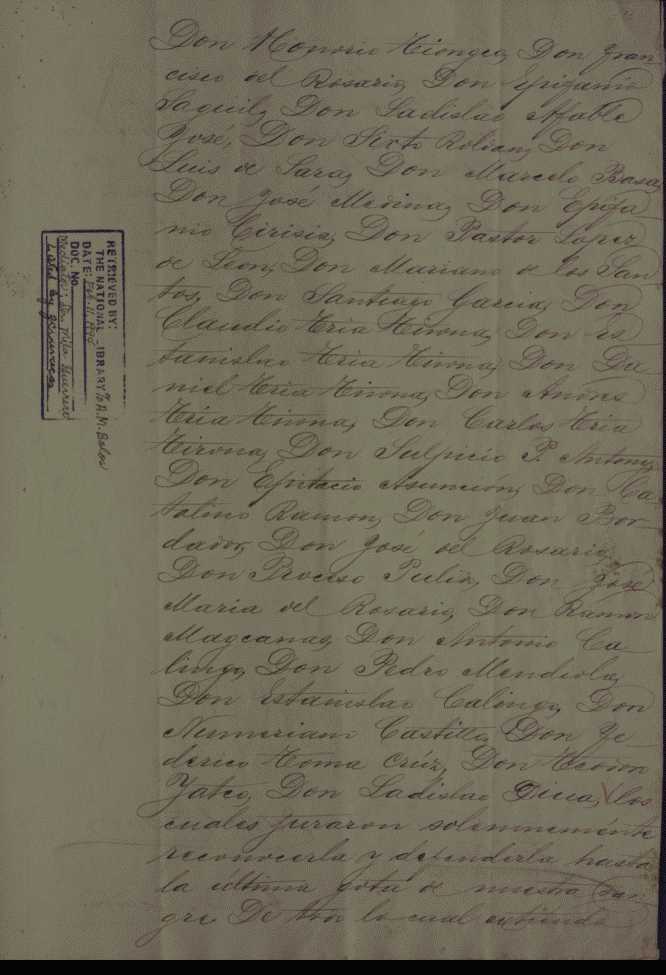 Don Honorio Tiongco, Don Fran-
cisco del Rosario, Don Epifanio
Saguil, Don Ladislao Afable
José, Don Sixto Roldan, Don
Luis de Lara, Don Marcelo Basa,
Don José Medina, Don Epifa-
nio Cirisia, Don Pastor Lopez
de Leon, Don Mariano de los San-
tos, Don Santiago Garcia, Don
Claudio Tria Tirona, Don Es-
tanislao Tria Tirona, Don Da-
niel Tria Tirona, Don Andres
Tria Tirona, Don Carlos Tria
Tirona, Don Sulpicio P. Antony,
Don Epitacio Asunción, Don Ca-
talino Ramon, Don Juan Bor-
dador, Don José del Rosario,
Don Proceso Pulia, Don José
Maria del Rosario, Don Ramon
Magcanas, Don Antonio Ca-
lingo, Don Pedro Mendiola,
Don Estanislao Calingo, Don
Numeriano Castillo, Don Fe-
derico Toma Crúz, Don Teodoro
Yatco, Don Ladislao Diua, los
cuales juraron solemnemente
reconocerla y defenderla hasta
la última gota de nuestra San-
gre. De todo lo cual extiendo
RETRIEVED BY:
THE NATIONAL LIBRARY
DATE: Feb. 11,
DOC. No.